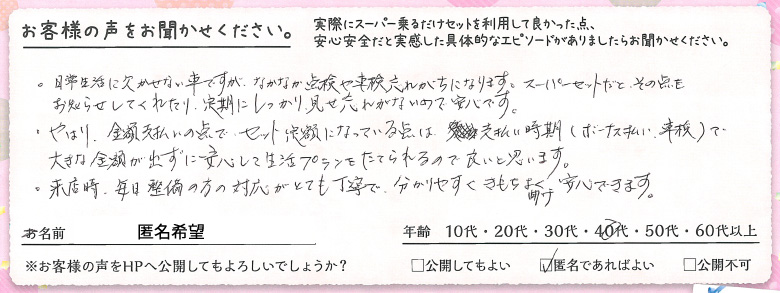 お客様の声をお聞かせください。
実際にスーパー乗るだけセットを利用して良かった点、
安心安全だと実感した具体的なエピソードがありましたらお聞かせください。
。日常生活に欠かせない車ですが、なかなか点検や車検忘れがちになります。スーパーセットだと、その点も
お知らせしてくれたり、定期にしっかり見せ忘れがないので安心です。
。やはり、金額支払いの点で、セット定額になっている点は、支払い時期(ボーナス払い、車検)で
大きな金額が出ずに安心して生活プランをたてられるので良いと思います。
。来店時、毎日整備の方の対応がとても丁寧で、分かりやすくきもちよく預け安心できます。
お名前 匿名希望
年齢 10代・20代・30代・40代・50代・60代以上
※お客様の声をHPへ公開してもよろしいでしょうか? □公開してもよい ☑匿名であればよい □公開不可